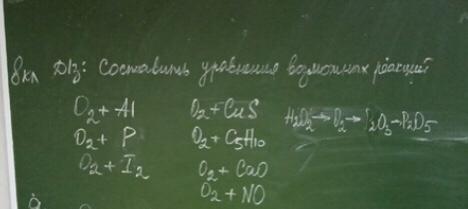 8кл Д/з: Составить уравнения возможных реакций
O2 + Al
O2 + P
O2 + I2
O2 + CuS
O2 + C5H10
O2 + CaO
O2 + NO
H2O2 → O2 → P2O3 → P2O5